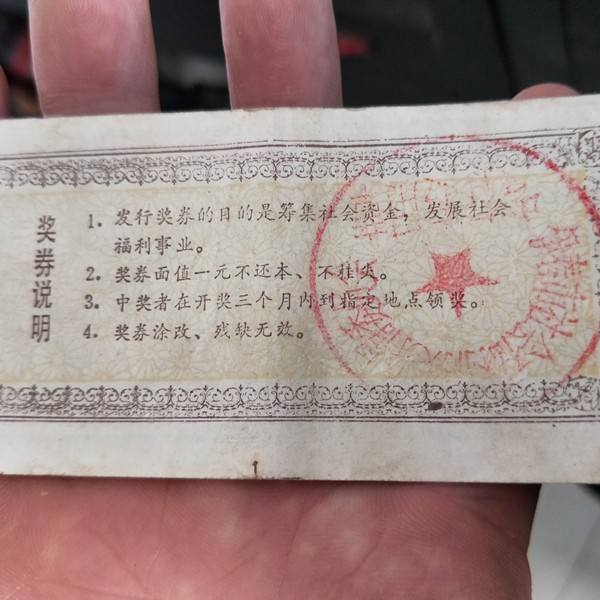 奖券说明
1. 发行奖券的目的是筹集社会资金，发展社会
福利事业。
2. 奖券面值一元不还本、不挂失。
3. 中奖者在开奖三个月内到指定地点领奖。
4. 奖券涂改、残缺无效。